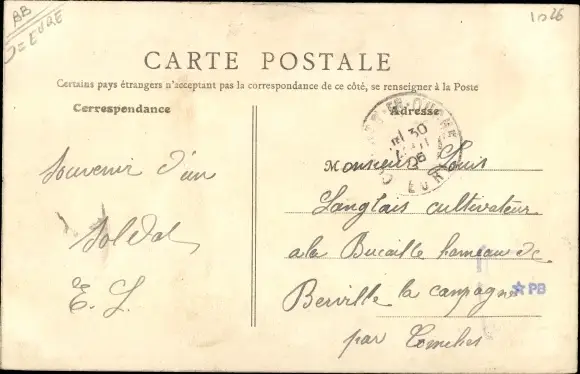 BB
D = EURE
1026
CARTE POSTALE
Certains pays étrangers n'acceptant pas la correspondance de ce côté, se renseigner à la Poste
Correspondance
Souvenir d'un
Soldat
E. L.
Adresse
30
06
EURE
Monsieur Louis
Langlais cultivateur
a la Bucaille hameau de
Berville la campagne
par Conches
PB